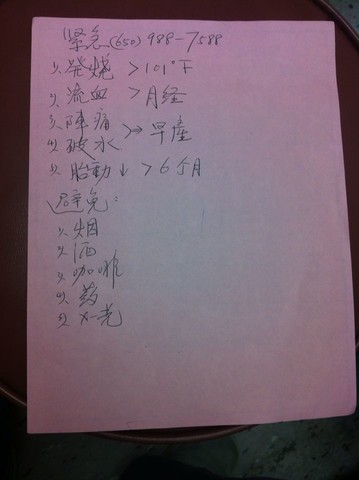 紧急(650)988-7588
1、発烧 >101°F
2、流血 >月经
3、陣痛
4、破水 >→早產
5、胎動↓ >6个月
避免:
1、烟
2、酒
3、咖啡
4、药
5、X-光